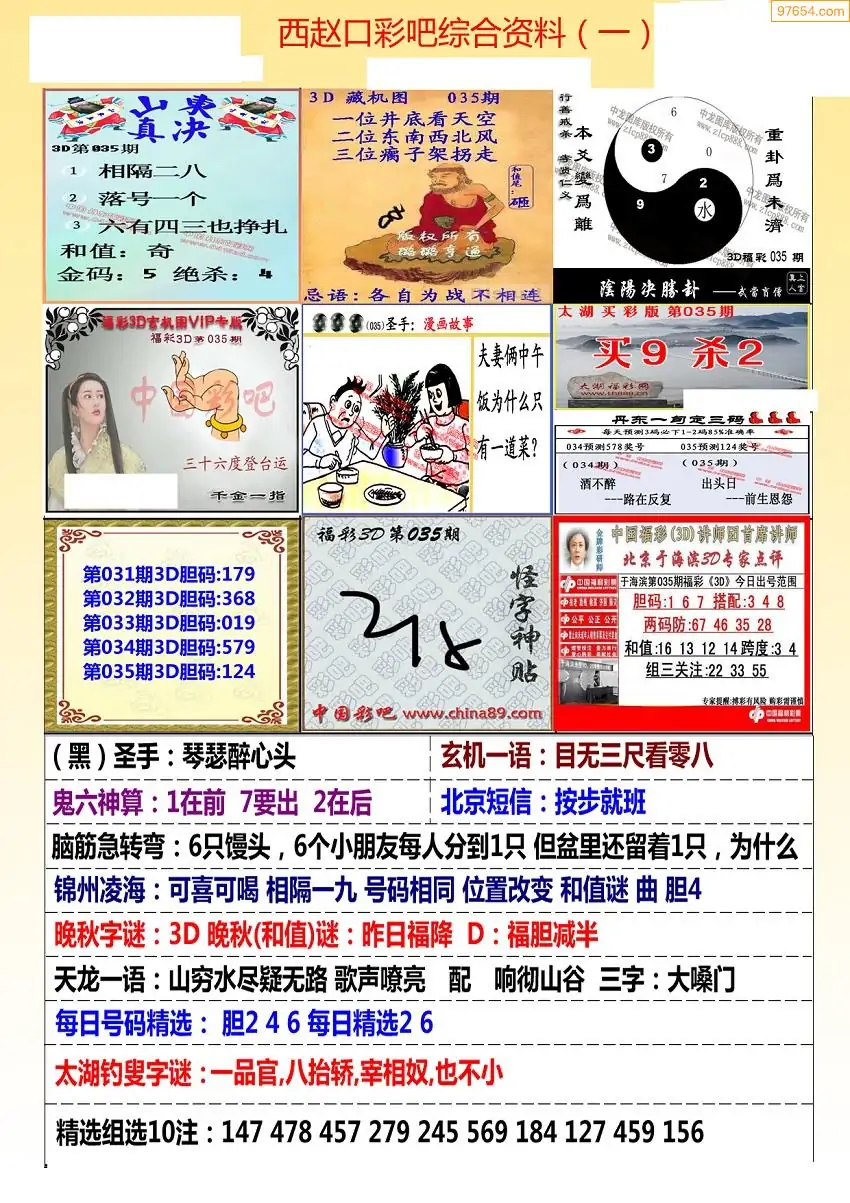 97654.com
西赵口彩吧综合资料（一）
3D第035期
1 相隔二八
2 落号一个
3 六有四三也挣扎
和值：奇
金码：5 绝杀：4
3D 藏机图 035期
一位井底看天空
二位东南西北风
三位瘸子架拐走
和值尾：砸
版权所有
璐璐亨通
忌语：各自为战不相连
行善戒杀
本爻變爲離
重卦爲未濟
6
3
0
7
2
9
水
3D福彩 035 期
陰陽决勝卦 ——武當肖僧
中龙图库版权所有
www.zlcp888.com
福彩3D玄机图VIP专版
福彩3D第035期
中国彩吧
三十六度登台运
千金一指
(035)圣手：漫画故事
夫妻俩中午
饭为什么只
有一道菜？
太湖买彩版 第035期
买9 杀2
太湖福彩网
www.th89.cn
丹东一句定三码
每天预测3码必下1-2码85%准确率
034预测578奖号 035预测124奖号
（034期） （035期）
酒不醉 出头日
---路在反复 ---前生恩怨
第031期3D胆码:179
第032期3D胆码:368
第033期3D胆码:019
第034期3D胆码:579
第035期3D胆码:124
福彩3D第035期
怪字神贴
中国彩吧 www.china89.com
金牌彩研师
中国福彩(3D)讲师团首席讲师
北京于海滨3D专家点评
中国福利彩票
于海滨第035期福彩《3D》今日出号范围
胆码:1 6 7 搭配:3 4 8
公平 公正 公开
两码防:67 46 35 28
和值:16 13 12 14跨度:3 4
组三关注:22 33 55
专家提醒:搏彩有风险 购彩需谨慎
中国福利彩票
（黑）圣手：琴瑟醉心头
玄机一语：目无三尺看零八
鬼六神算：1在前 7要出 2在后
北京短信：按步就班
脑筋急转弯：6只馒头，6个小朋友每人分到1只 但盆里还留着1只，为什么
锦州凌海：可喜可喝 相隔一九 号码相同 位置改变 和值谜 曲 胆4
晚秋字谜：3D 晚秋(和值)谜：昨日福降 D：福胆减半
天龙一语：山穷水尽疑无路 歌声嘹亮 配 响彻山谷 三字：大嗓门
每日号码精选： 胆2 4 6 每日精选2 6
太湖钓叟字谜：一品官,八抬轿,宰相奴,也不小
精选组选10注：147 478 457 279 245 569 184 127 459 156